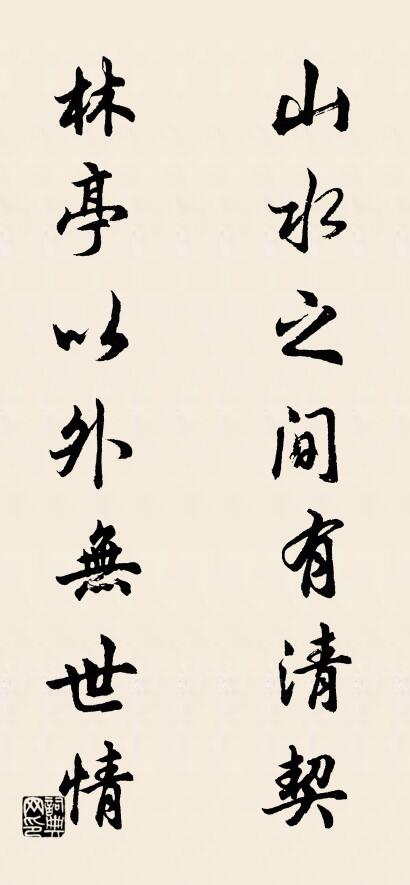 山水之间有清契
林亭以外無世情